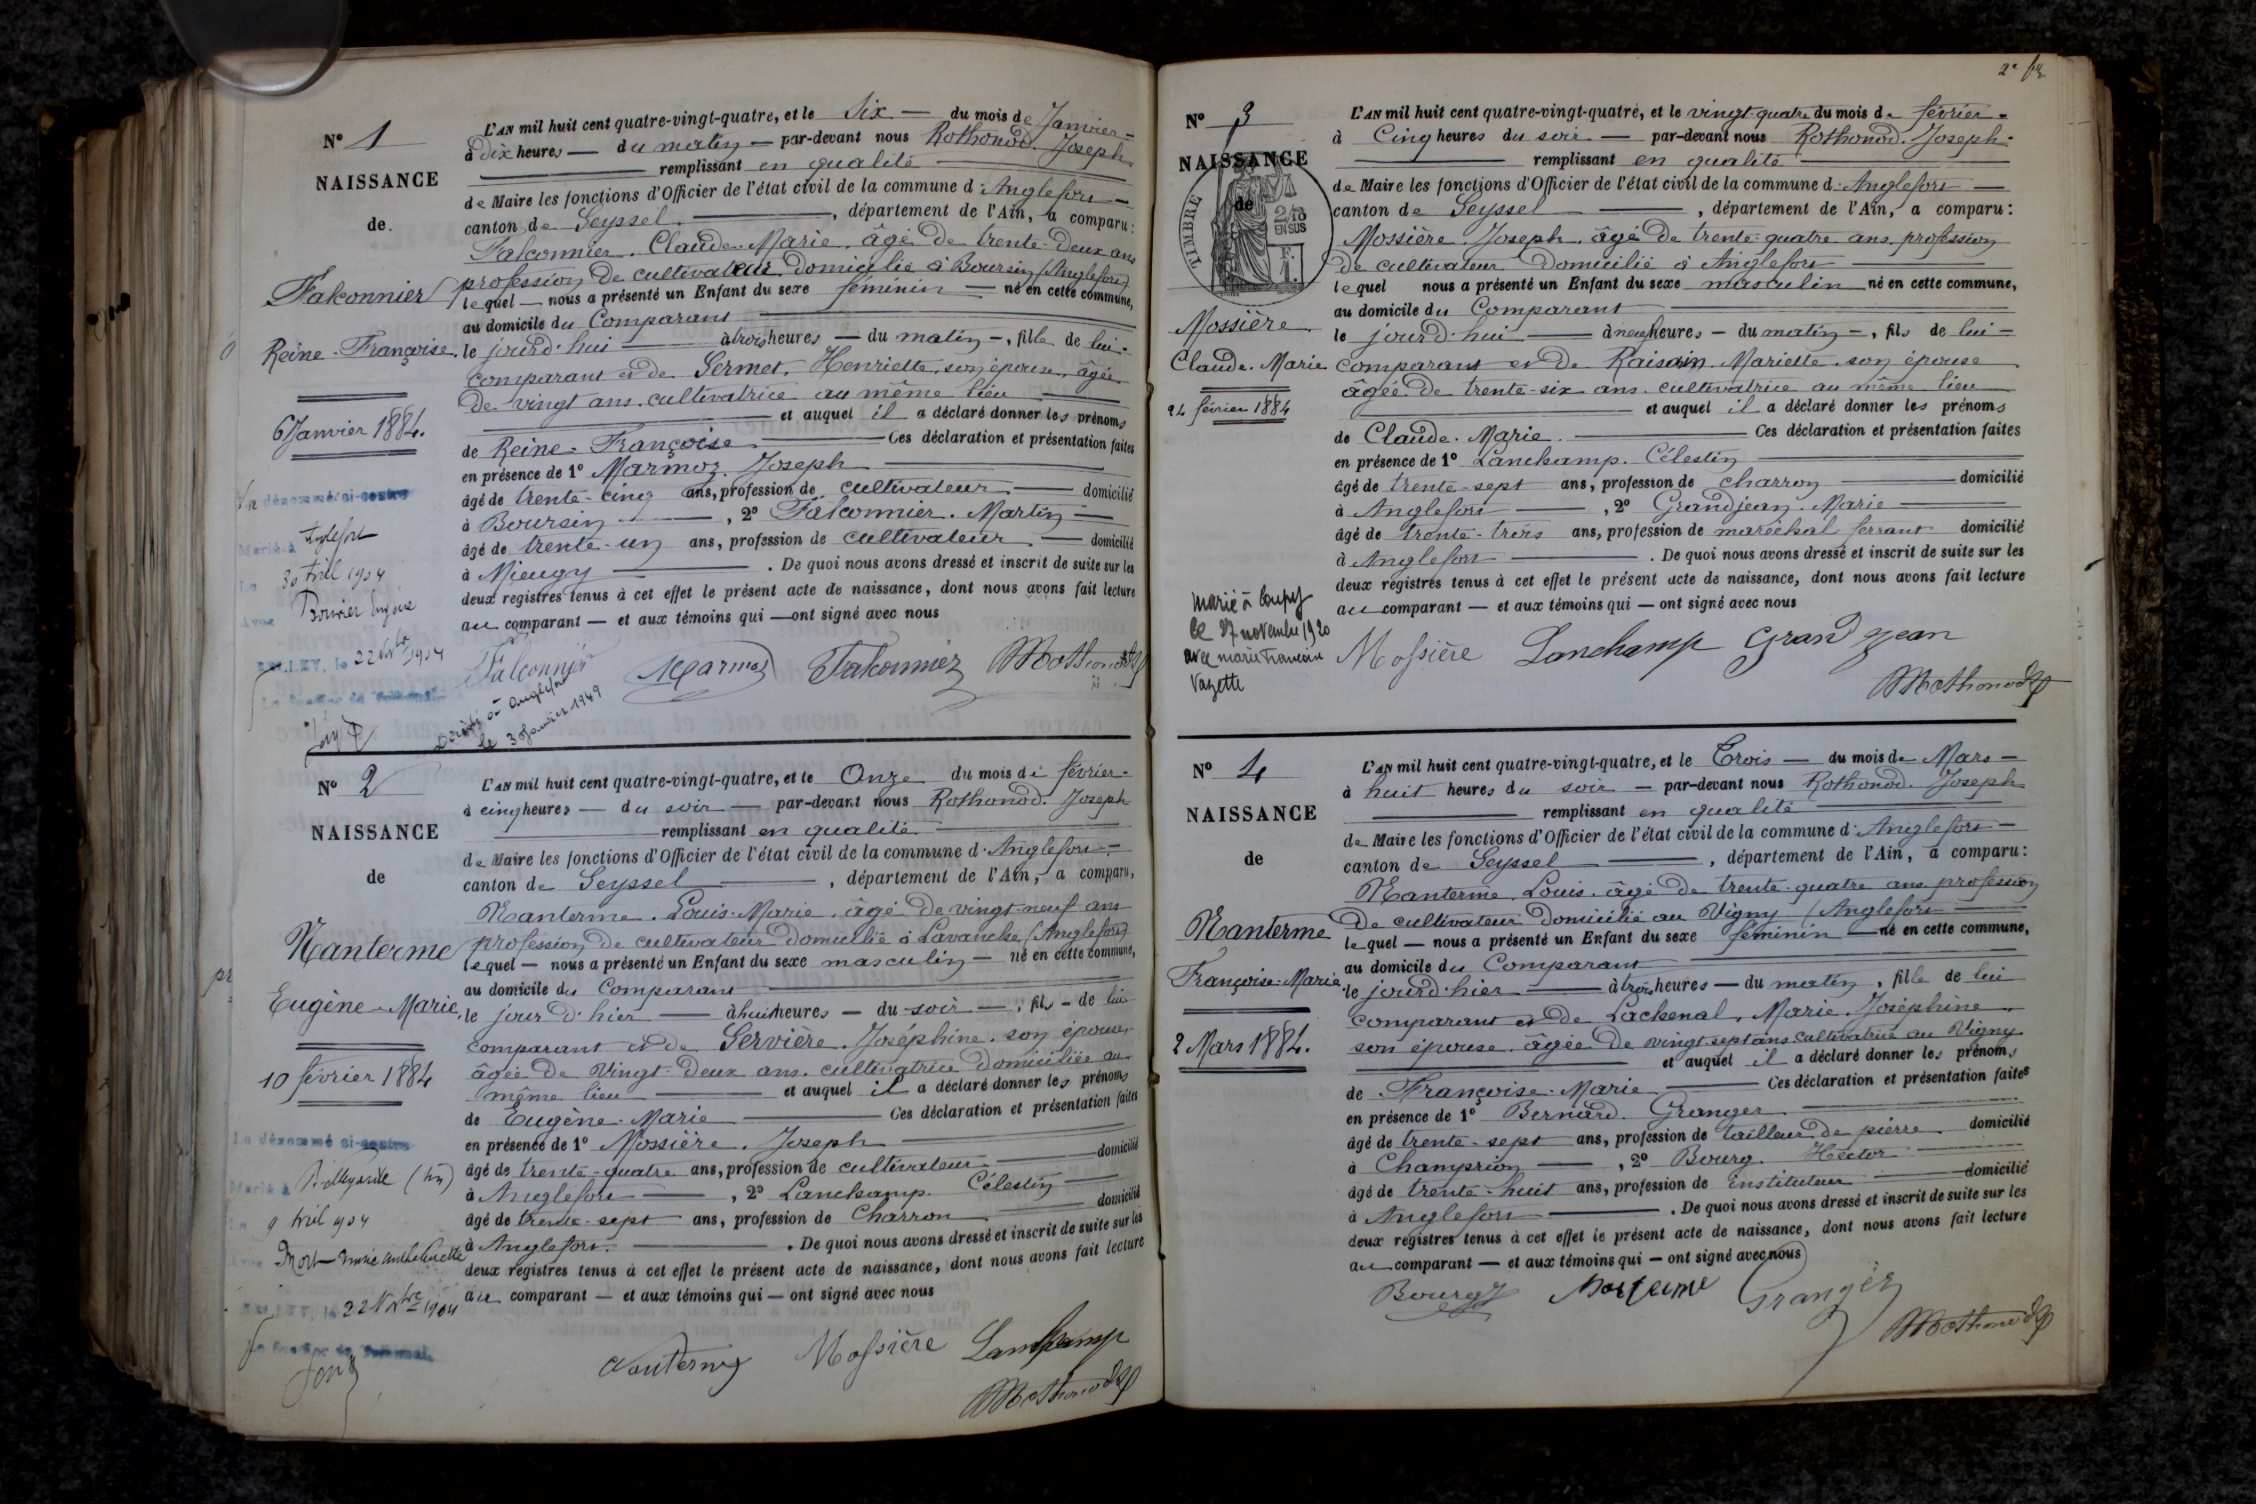 N° 1
NAISSANCE
de
Falconnier
Reine-Françoise.
6 Janvier 1884.
L'AN mil huit cent quatre-vingt-quatre, et le Six — du mois de Janvier —
à dix heures — du matin — par-devant nous Rothonod. Joseph
remplissant en qualité
de Maire les fonctions d'Officier de l'état civil de la commune d'Anglefort —
canton de Seyssel —, département de l'Ain, a comparu :
Falconnier. Claude-Marie. âgé de trente-deux ans
profession de cultivateur domicilié à Boursin (Anglefort)
lequel — nous a présenté un Enfant du sexe féminin — né en cette commune,
au domicile du Comparant
le jourd'hui — à trois heures — du matin —, fille de lui
comparant et de Sermet. Henriette. son épouse. âgée
de vingt ans. cultivatrice au même lieu
et auquel il a déclaré donner les prénoms
de Reine-Françoise — Ces déclaration et présentation faites
en présence de 1° Marmoz. Joseph
âgé de trente-cinq ans, profession de cultivateur — domicilié
à Boursin —, 2° Falconnier. Martin —
âgé de trente-un ans, profession de cultivateur — domicilié
à Mieugy — . De quoi nous avons dressé et inscrit de suite sur les
deux registres tenus à cet effet le présent acte de naissance, dont nous avons fait lecture
au comparant — et aux témoins qui — ont signé avec nous
Falconnier Marmoz Falconnier Rothonod
La dénommé ci-contre
Marié à Anglefort
Le 30 Avril 1904
Avec Bouvier Eugène
BELLEY, le 22 9bre 1904
Décédée à Anglefort
le 30 Janvier 1949
N° 2
NAISSANCE
de
Nanterme
Eugène-Marie.
10 février 1884
L'AN mil huit cent quatre-vingt-quatre, et le Onze du mois de février —
à cinq heures — du soir — par-devant nous Rothonod. Joseph
remplissant en qualité
de Maire les fonctions d'Officier de l'état civil de la commune d'Anglefort —
canton de Seyssel —, département de l'Ain, a comparu,
Nanterme. Louis-Marie. âgé de vingt-neuf ans
profession de cultivateur domicilié à Lavanche (Anglefort)
lequel — nous a présenté un Enfant du sexe masculin — né en cette commune,
au domicile du Comparant
le jour d'hier — à huit heures — du soir —, fils de lui
comparant et de Servière. Joséphine. son épouse
âgée de vingt-deux ans. cultivatrice domiciliée au
même lieu — et auquel il a déclaré donner les prénoms
de Eugène-Marie — Ces déclaration et présentation faites
en présence de 1° Mossière. Joseph
âgé de trente-quatre ans, profession de cultivateur — domicilié
à Anglefort —, 2° Lanchamp. Célestin —
âgé de trente-sept ans, profession de Charron — domicilié
à Anglefort. — . De quoi nous avons dressé et inscrit de suite sur les
deux registres tenus à cet effet le présent acte de naissance, dont nous avons fait lecture
au comparant — et aux témoins qui — ont signé avec nous
Nanterme Mossière Lanchamp
Rothonod
Le dénommé ci-contre
Marié à Bellegarde (Ain)
Le 9 Avril 1904
BELLEY, le 22 9bre 1904
2e
N° 3
NAISSANCE
de
TIMBRE
2/10
EN SUS
Mossière
Claude-Marie
24 février 1884
L'AN mil huit cent quatre-vingt-quatre, et le vingt-quatre du mois de février —
à Cinq heures du soir — par-devant nous Rothonod. Joseph.
remplissant en qualité
de Maire les fonctions d'Officier de l'état civil de la commune d'Anglefort —
canton de Seyssel —, département de l'Ain, a comparu :
Mossière. Joseph. âgé de trente-quatre ans. profession
de cultivateur domicilié à Anglefort
lequel nous a présenté un Enfant du sexe masculin né en cette commune,
au domicile du Comparant
le jourd'hui — à neuf heures — du matin —, fils de lui —
comparant et de Raisain. Mariette. son épouse
âgée de trente-six ans. cultivatrice au même lieu
et auquel il a déclaré donner les prénoms
de Claude-Marie. — Ces déclaration et présentation faites
en présence de 1° Lanchamp. Célestin
âgé de trente-sept ans, profession de charron — domicilié
à Anglefort —, 2° Grandjean. Marie —
âgé de trente-trois ans, profession de maréchal-ferrant domicilié
à Anglefort — . De quoi nous avons dressé et inscrit de suite sur les
deux registres tenus à cet effet le présent acte de naissance, dont nous avons fait lecture
au comparant — et aux témoins qui — ont signé avec nous
Mossière Lanchamp Grandjean
Rothonod
Marié à Coupy
le 27 novembre 1920
avec Marie Françoise
Vazette
N° 4
NAISSANCE
de
Nanterme
Françoise-Marie.
2 Mars 1884.
L'AN mil huit cent quatre-vingt-quatre, et le Trois — du mois de Mars —
à huit heures du soir — par-devant nous Rothonod. Joseph
remplissant en qualité
de Maire les fonctions d'Officier de l'état civil de la commune d'Anglefort —
canton de Seyssel —, département de l'Ain, a comparu :
Nanterme. Louis. âgé de trente-quatre ans. profession
de cultivateur domicilié au Vigny (Anglefort
lequel — nous a présenté un Enfant du sexe féminin — né en cette commune,
au domicile du Comparant
le jourd'hier — à trois heures — du matin, fille de lui
comparant et de Lachenal. Marie. Joséphine
son épouse. âgée de vingt sept ans cultivatrice au Vigny
et auquel il a déclaré donner les prénoms
de Françoise-Marie — Ces déclaration et présentation faites
en présence de 1° Bernard. Granger
âgé de trente-sept ans, profession de tailleur de pierre domicilié
à Champrion —, 2° Bourg. Hector
âgé de trente-huit ans, profession de instituteur — domicilié
à Anglefort — . De quoi nous avons dressé et inscrit de suite sur les
deux registres tenus à cet effet le présent acte de naissance, dont nous avons fait lecture
au comparant — et aux témoins qui — ont signé avec nous
Bourg Nanterme Granger
Rothonod